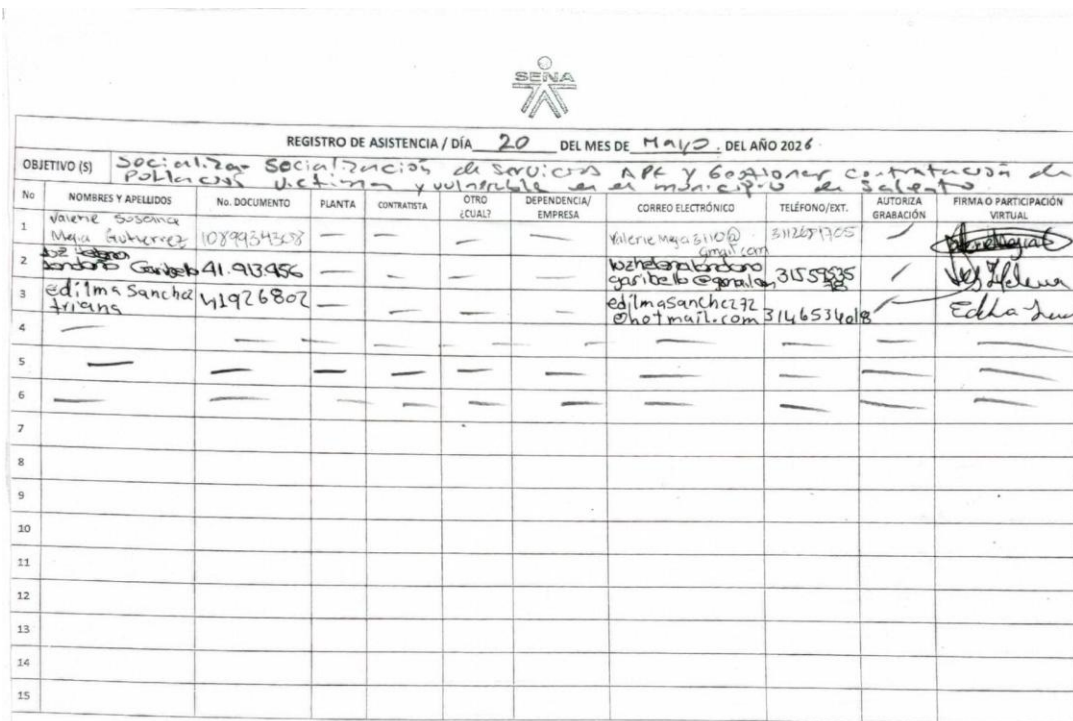 SENA
REGISTRO DE ASISTENCIA / DÍA 20 DEL MES DE Mayo. DEL AÑO 2026
OBJETIVO (S) Socializar Socialización de servicios APE y Gestionar contratación de
Población víctima y vulnerable en el municipio de Salento
No NOMBRES Y APELLIDOS No. DOCUMENTO PLANTA CONTRATISTA OTRO ¿CUAL? DEPENDENCIA/ EMPRESA CORREO ELECTRÓNICO TELÉFONO/EXT. AUTORIZA GRABACIÓN FIRMA O PARTICIPACIÓN VIRTUAL
1 Valerie
Mejia Gutierrez 1089934308 — — — — ValerieMejia3110@ gmail.com
2 Luz Helena
Londoño Garibello 41.913.456 — — — — luzhelenalondono
garibello@gmail.com Luz Helena
3 edilma Sanchez
triana 41926802 — — — edilmasanchez72
@hotmail.com 3146534018
4 — — — — — — — — — —
5 — — — — — — — — — —
6 — — — — — — — — — —
7
8
9
10
11
12
13
14
15